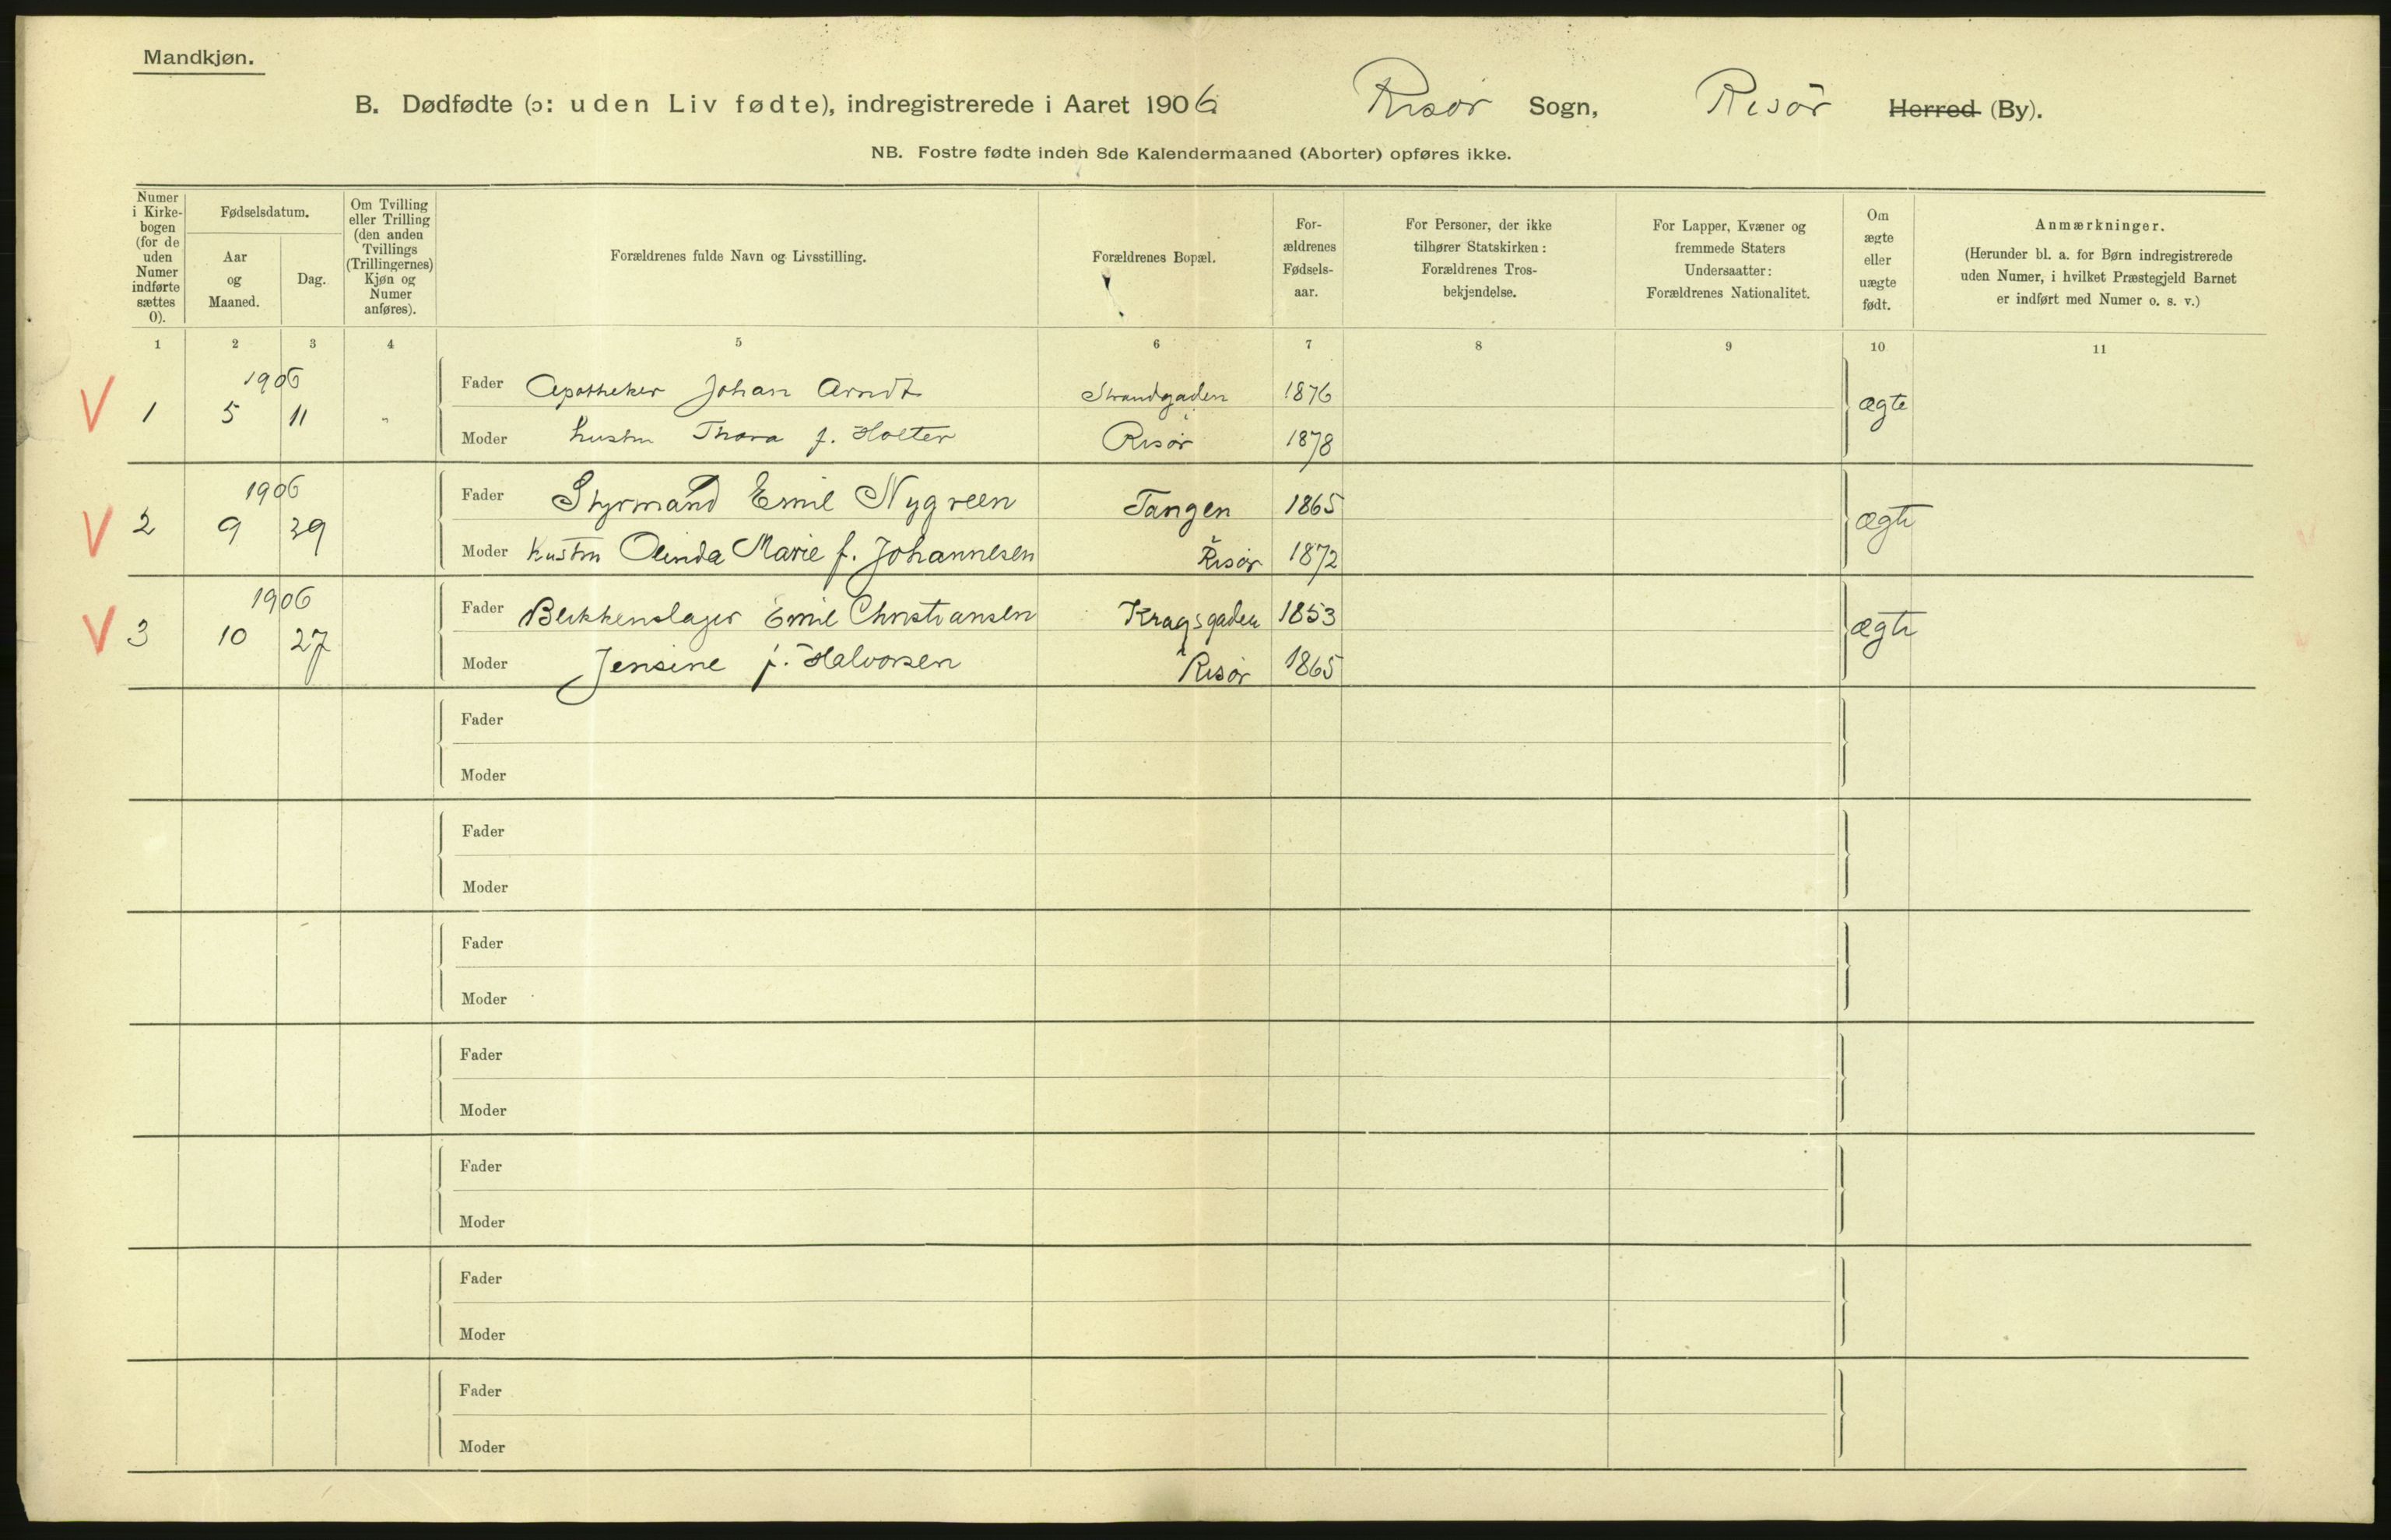 Mandkjøn.
B. Dødfødte (ɔ: uden Liv fødte), indregistrerede i Aaret 1906 Risør Sogn, Risør Herred (By).
NB. Fostre fødte inden 8de Kalendermaaned (Aborter) opføres ikke.
Numer i Kirke-bogen (for de uden Numer indførte sættes 0).
Fødselsdatum.
Aar og Maaned.
Dag.
Om Tvilling eller Trilling (den anden Tvillings (Trillingernes) Kjøn og Numer anføres).
Forældrenes fulde Navn og Livsstilling.
Forældrenes Bopæl.
For-ældrenes Fødsels-aar.
For Personer, der ikke tilhører Statskirken: Forældrenes Tros-bekjendelse.
For Lapper, Kvæner og fremmede Staters Undersaatter: Forældrenes Nationalitet.
Om ægte eller uægte født.
Anmærkninger.
(Herunder bl. a. for Børn indregistrerede uden Numer, i hvilket Præstegjeld Barnet er indført med Numer o. s. v.)
1 2 3 4 5 6 7 8 9 10 11
1906
V 1 5 11 " Fader Apotheker Johan Arndt Strandgaden 1876 ægte
Moder hustru Thora f. Holter Risør 1878
1906
V 2 9 29 Fader Styrmand Emil Nygreen Tangen 1865 ægte
Moder hustru Olinda Marie f. Johannesen Risør 1872
1906
V 3 10 27 Fader Blikkenslager Emil Christiansen Kragsgaden 1853 ægte
Moder Jensine f. Halvorsen Risør 1865
Fader
Moder
Fader
Moder
Fader
Moder
Fader
Moder
Fader
Moder
Fader
Moder
Fader
Moder